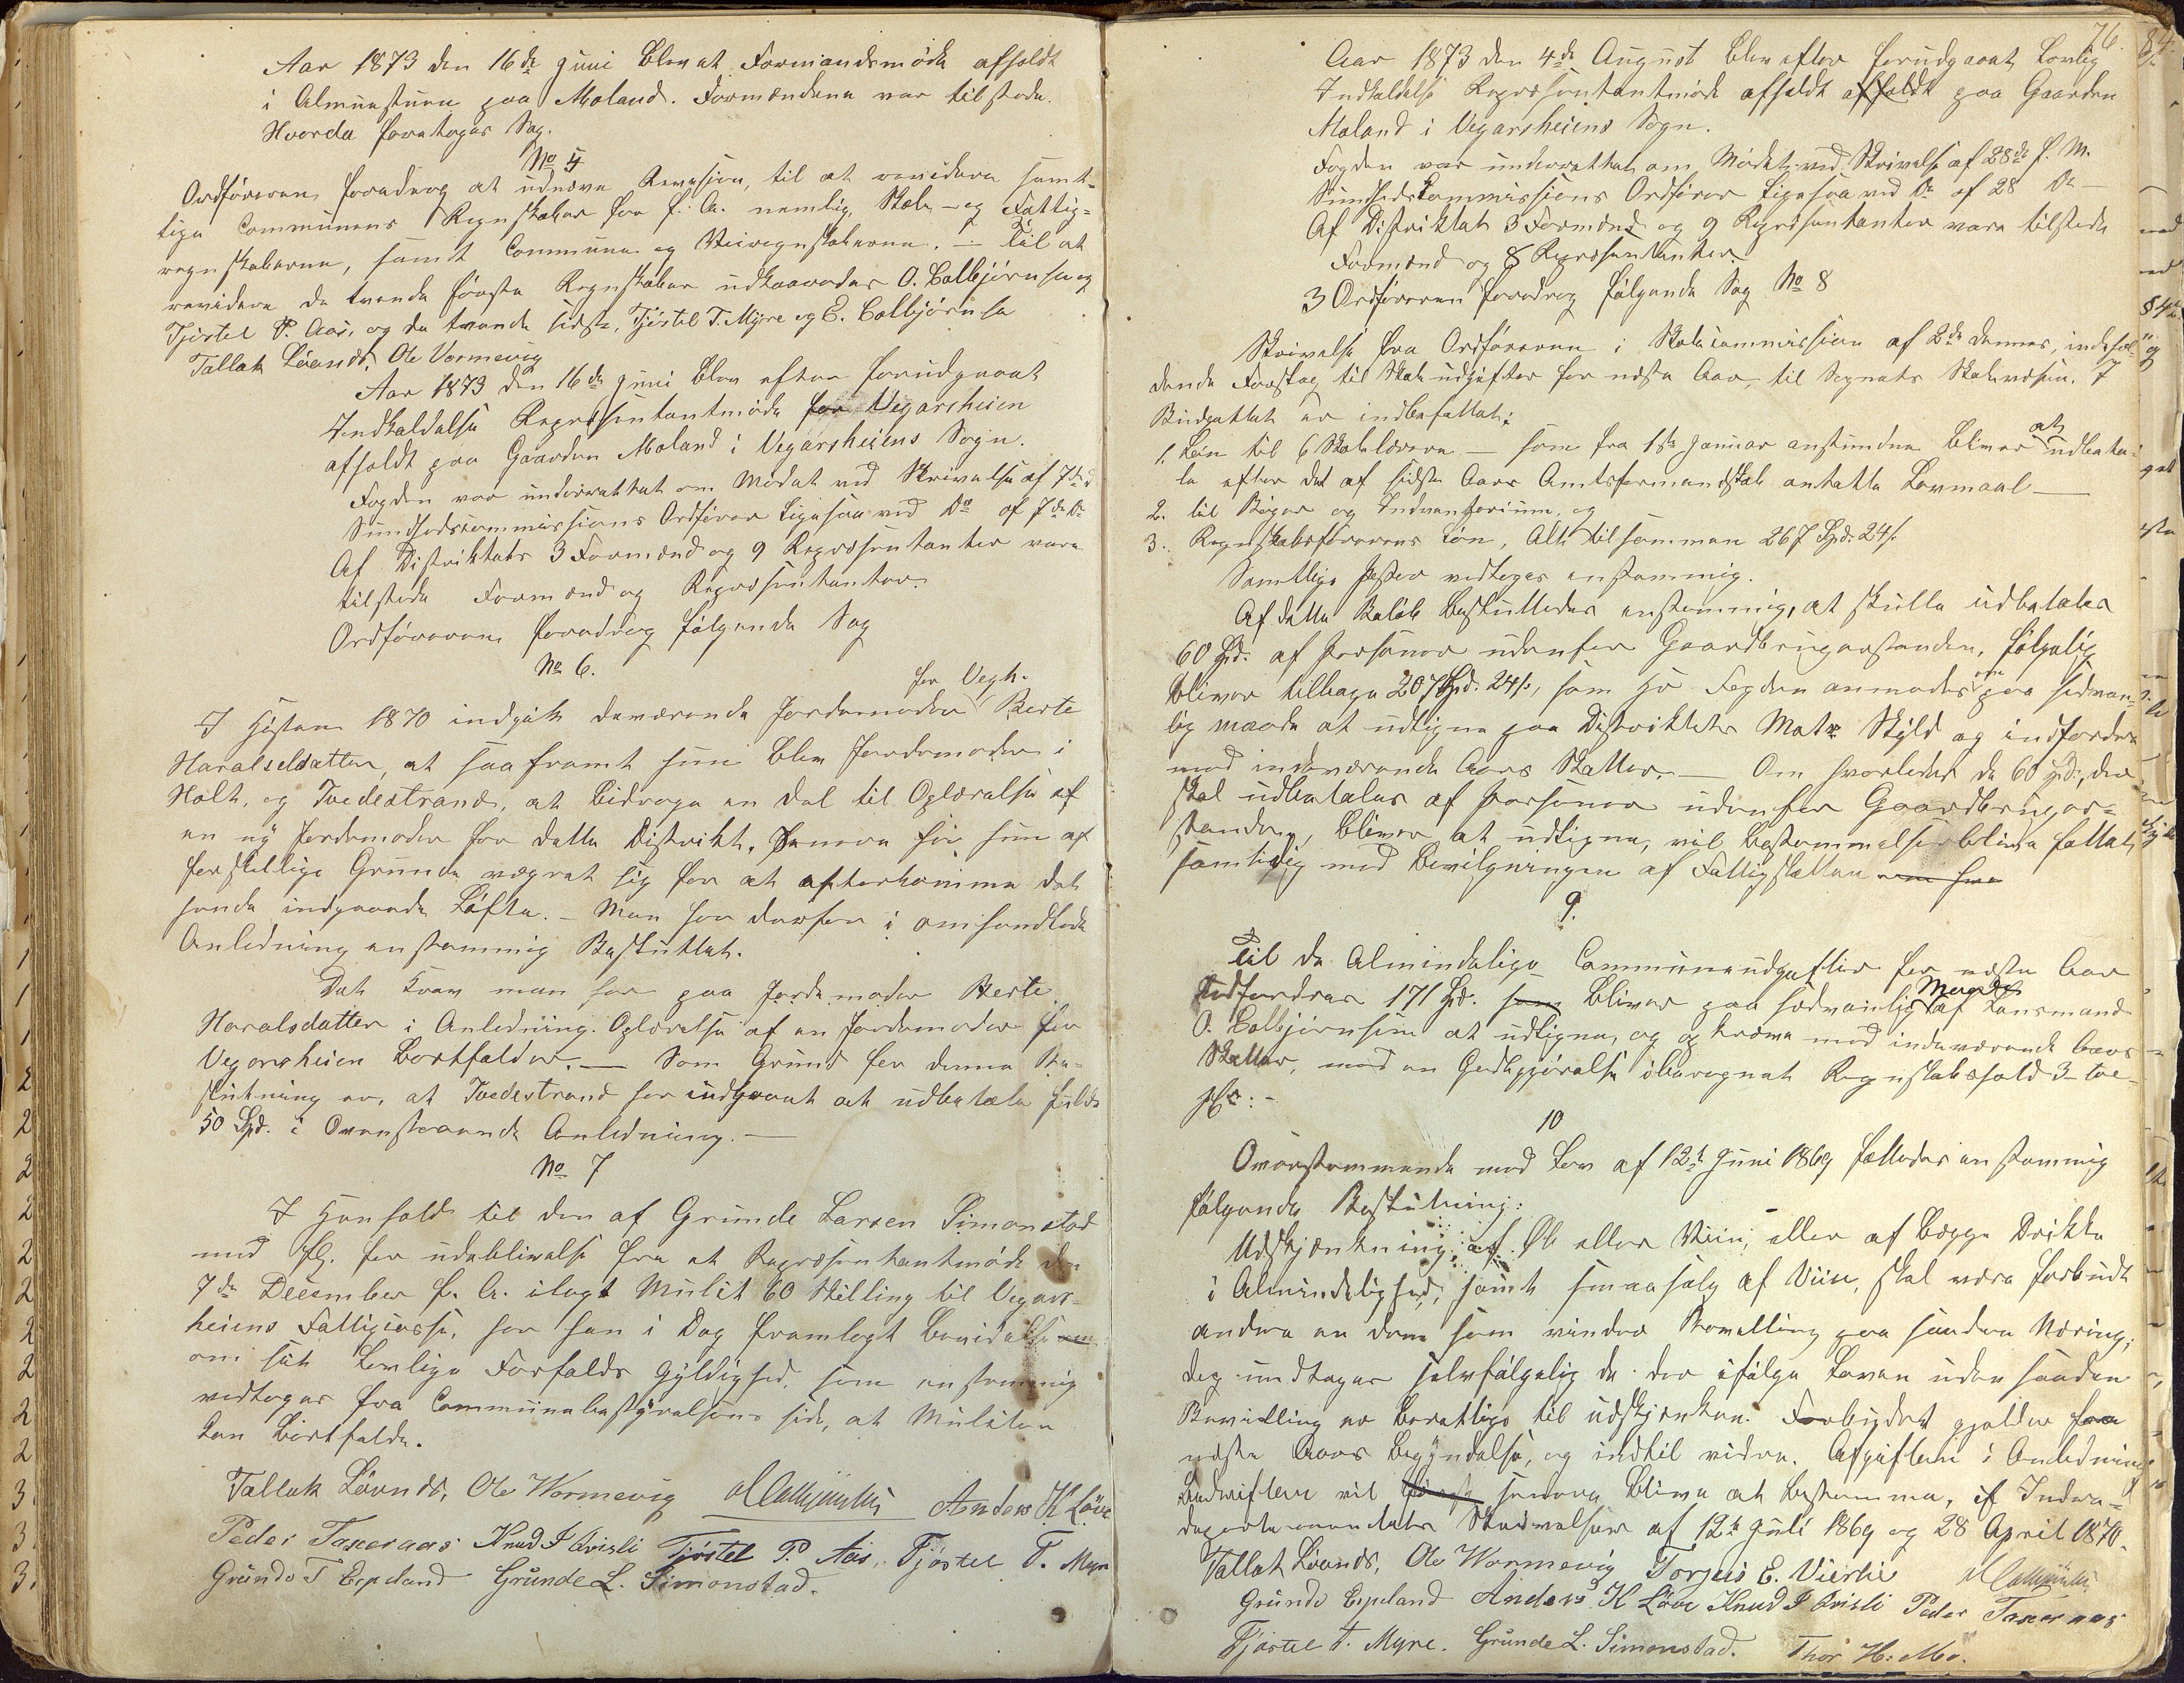 Aar 1873 den 16de Juni blev et Formandsmöde afholdt
i Almuestuen paa Moland. Formændene var tilstede.
Hvorda foretoges Sag.
No 5
Ordföreren foredrog at udnævne Revision, til at revidere samt-
lige Communens Regnskaber for f. A. nemlig, Skole- og Fattig-
regnskaberne, samt Commune og Veiregnskaberne. - Til at
revidere de tvende förste Regnskaber udkaaredes O. Colbjörnsen og
Tjöstel P. Aas, og de tvende sidste, Tjöstel T. Myre og E. Colbjörnsen
Tallak Lövnds, Ole Vormevig
Aar 1873 den 16de Juni blev efter forudgaaet
Indkaldelse Repræsentantmöde for Vegarsheien
afholdt paa Gaarden Moland i Vegarsheiens Sogn.
Fogden var underrettet om Mödet ved Skrivelse af 7de d
Sundhedscommissions Ordförer ligesaa ved Do af 7de Do
Af Distriktets 3 Formænd og 9 Repræsentanter vare
tilstede Formænd og Repræsentanter.
Ordföreren foredrog fölgende Sag
No 6.
for Vegh.
I Hösten 1870 indgik daværende Jordemoder Berte
Haralsdatter, at saafremt hun blev Jordemoder i
Holt, og Tvedestrand, at bidrage en Del til Oplærelse af
en ny Jordemoder for dette Distrikt, senere har hun af
forskjellige Grunde vægret sig for at efterkomme det
hende indgaaede Löfte. - Man har derfor i omhandlede
Anledning enstemmig Besluttet.
Det Krav man har paa Jordemoder Berte
Haralsdatter i Anledning Oplærelse af en Jordemoder for
Vegarsheien bortfalder. - Som Grund for denne Be-
slutning er, at Tvedestrand har indgaaet at udbetale fulde
50 Spd. i Ovenstaaende Anledning. -
No 7
I Henhold til den af Grunde Larsen Simonstad
med fl. for udeblivelse fra et Repræsentantmöde den
7de December f. A. ilagt Mulct 60 Skilling til Vegars-
heiens Fattigcasse, har han i Dag fremlagt Bevidelse
om sit lovlige Forfalds Gyldighed, som enstemmig
vedtoges fra Communebestyrelsens side, at Mulcten
kan bortfalde.
Tallak Lövnds, Ole Wormevig Anders K Löve
Peder Taxeraas Knud J Qvisli Tjöstel P. Aas, Tjöstel T. Myre
Grunde T Espeland Grunde L. Simonstad.
76.
Aar 1873 den 4de August blev efter forudgaaet lovlig
Indkaldelse Repræsentantmöde afholdt afholdt paa Gaarden
Moland i Vegarsheiens Sogn.
Fogden var underrettet om Mödet ved Skrivelse af 28de f. M.
Sundhedscommissions Ordförer ligesaa ved Do af 28 Do -
Af Distriktets 3 Formænd og 9 Repræsentanter vare tilstede
Formænd og 8 Repræsentanter.
3 Ordföreren foredrog fölgende Sag No 8
Skrivelse fra Ordföreren i Skolecommission af 2de dennes, indehol-
dende Forslag til Skoleudgifter for næste Aar til Sognets Skolevæsen. I
Budgettet er indbefattet:
1. Lön til 6 Skolelærere - som fra 1ste Januar anstundne bliver at udbeta-
le efter det af sidste Aars Amtsformandskab antatte Lönmaal -
2. til Böger og Indventarium, og
3. Regnskabsförerens Lön, Alt tilsammen 267 Spd. 24 s.
Samtlige Poster vedtoges enstemmig.
Af dette Belöb besluttedes enstemmig, at skulle udbetales
60 Spd. af Personer udenfor Gaardbrugerstanden, fölgelig
bliver tilbage 207 Spd. 24 s, som Hr Fogden anmodes om paa sedvan-
lig maade at udligne paa Distriktets Matr Skyld og indfordre
med indeværende Aars Skatter. - Om hvorledes de 60 Spd., der
skal udbetales af Personer udenfor Gaardbruger-
standen, bliver at udligne, vil bestemmelse blive fattet
samtidig med Bevilgningen af Fattigskatten
9.
Til de Almindelige Communeudgifter for næste Aar
Udfordres 171 Spd. som bliver paa sædvanlig Maade af Lensmand
O. Colbjörnsen at udligne, og opkræve med indeværende Aars
Skatter, med en Godtgjörelse iberegnet Regnskabshold 3- tre
pCt: -
10
Overstemmende med Lov af 12te Juni 1869 fattedes enstemmig
fölgende Beslutning:
Udskjænkning af Öl eller Viin, eller af begge Drikke
i Almindelighed, samt smaasalg af Viin, skal være forbudt
andre en dem som vinder Bevilling paa saaden Næring;
dog undtages selvfölgelig de der ifölge Loven uden saaden
Bevilling er berettige til udskjenken. Forbudet gjælder fra
næste Aars begyndelse, og indtil videre. Afgiften i Anledning
Bedriften vil senere blive at bestemme, jf Indre-
departementets Skrivelser af 12te Juli 1869 og 28 April 1870.
Tallak Lövnds, Ole Wormevig Torjus E. Vierlie
Grunde Espeland Anders K Löve Knud J Qvisli Peder Taxeraas
Tjöstel T. Myre. Grunde L. Simonstad. Thor H. Mo.